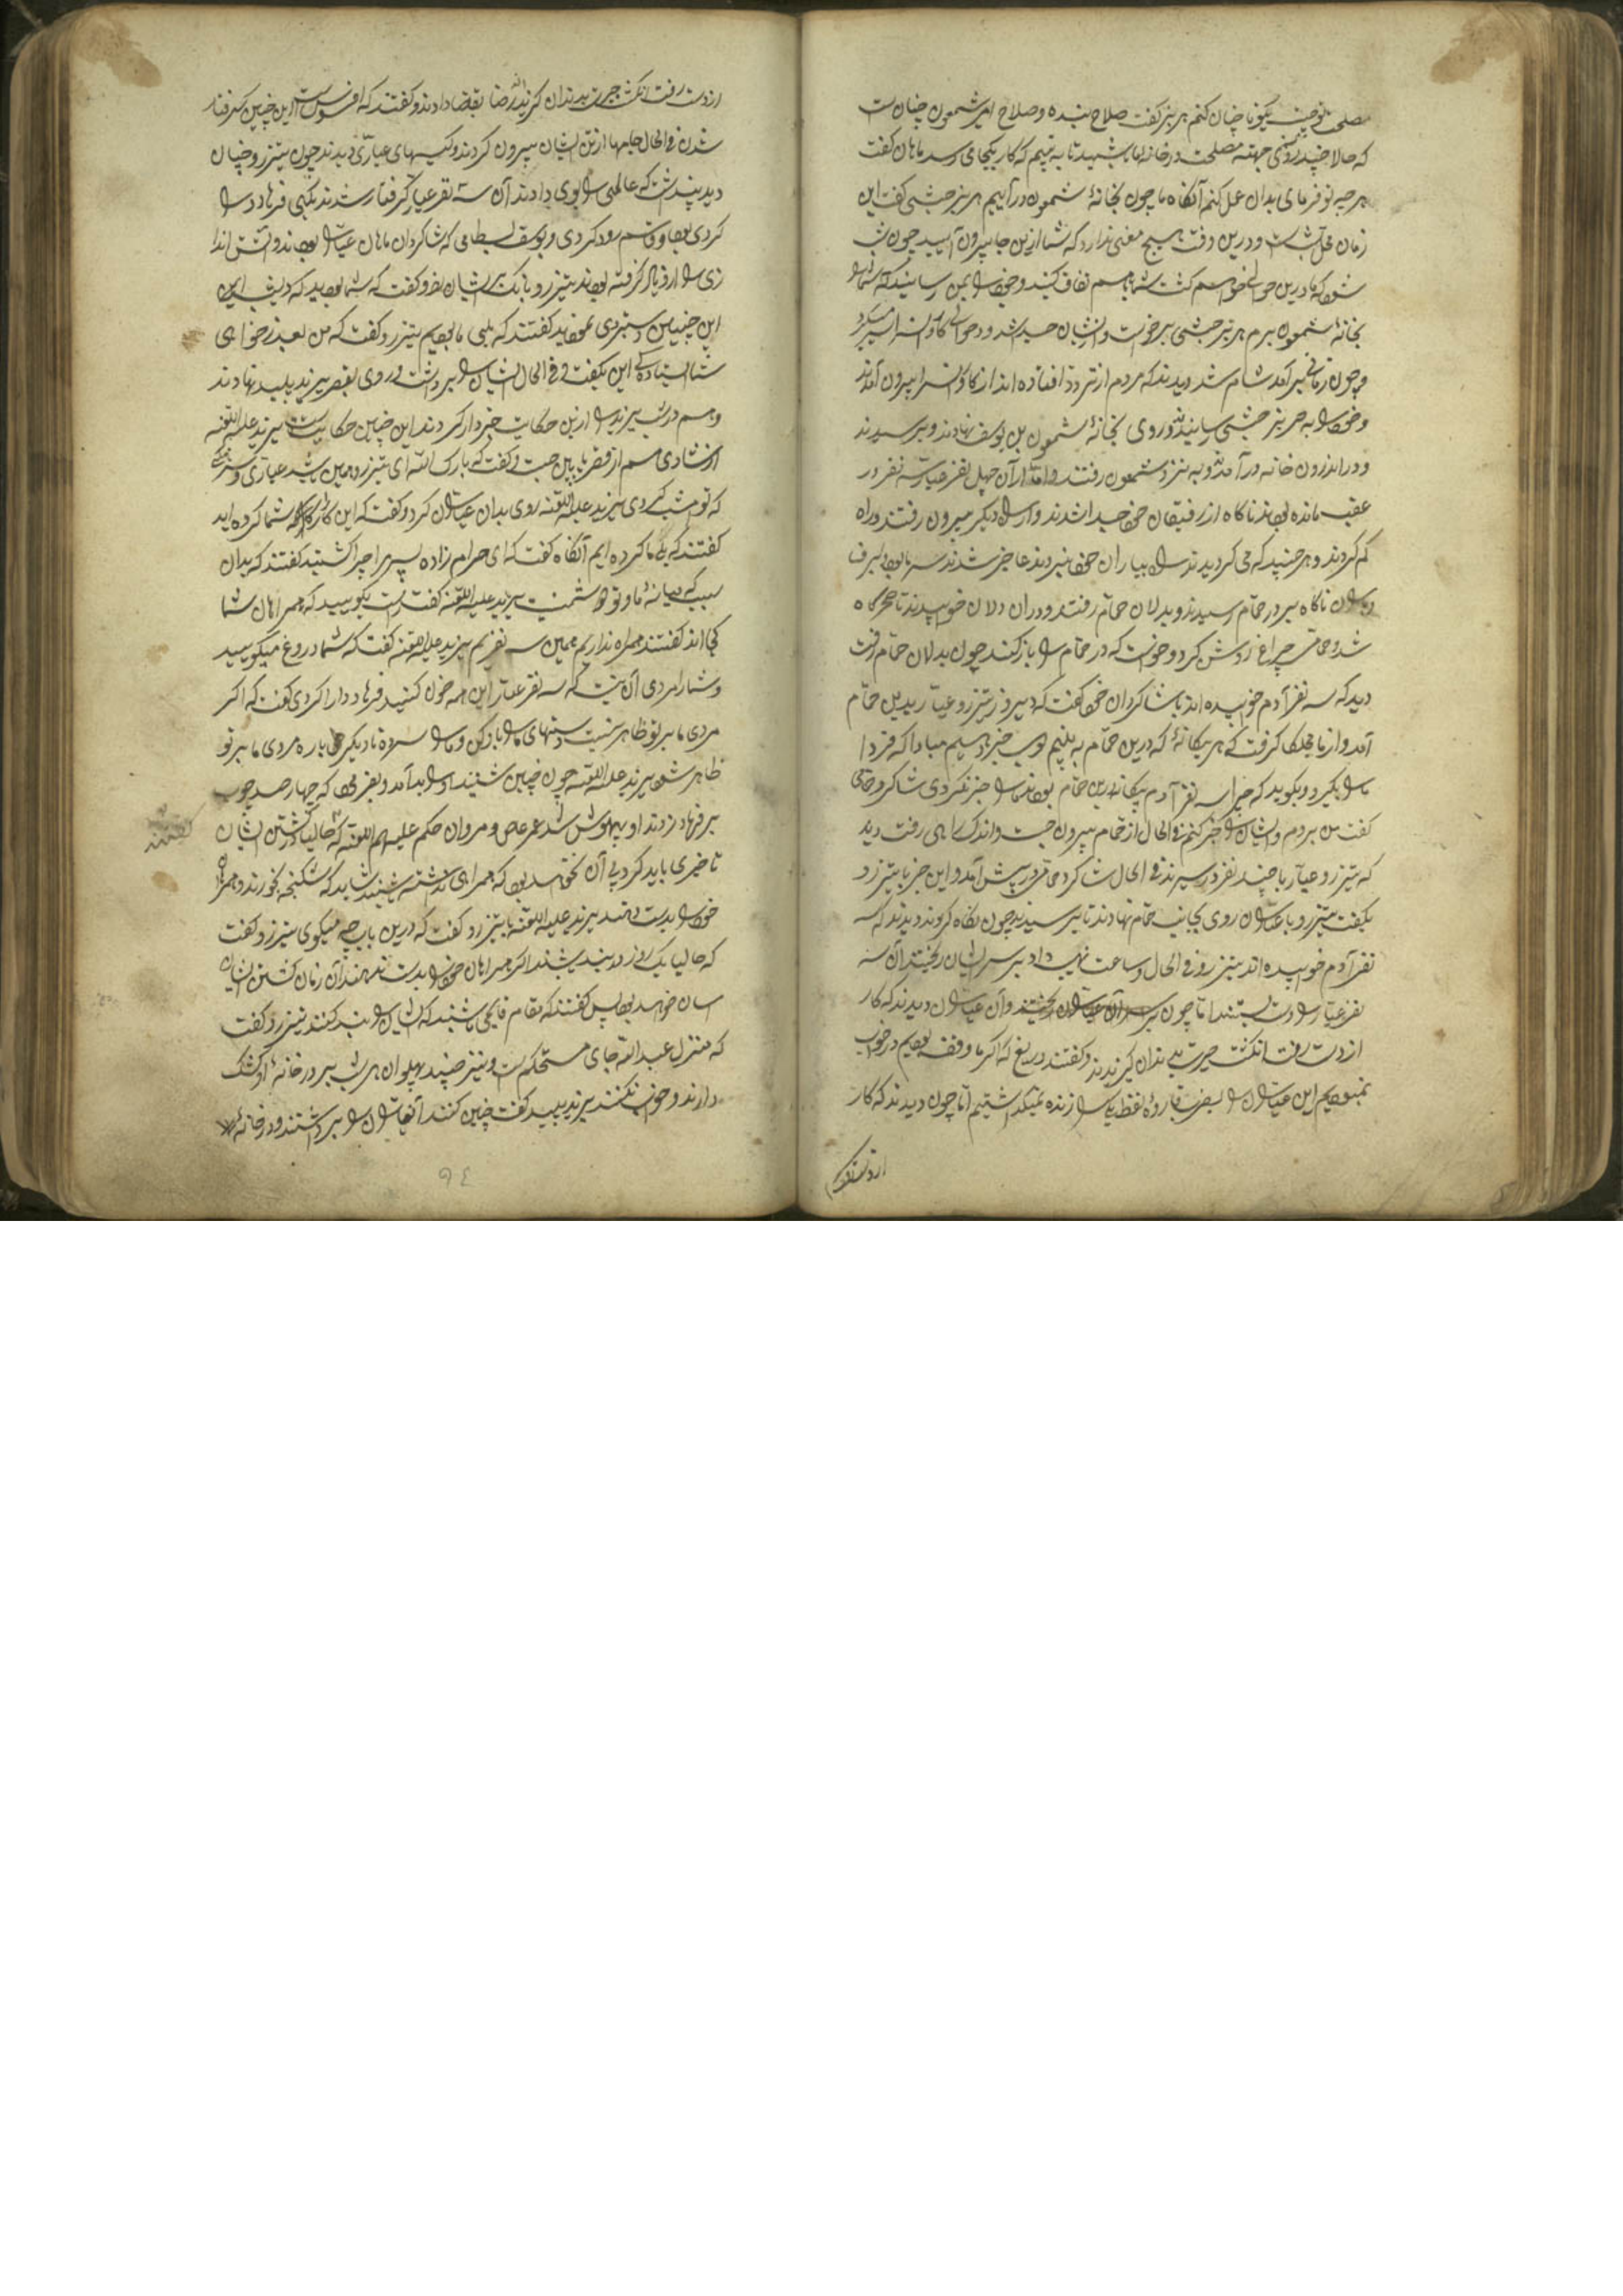 مصلحت تو چیست بگو تا چنان کنم هربز گفت صلاح بنده و صلاح امیر شمعون چنانست
که حالا چند روزی جهته مصلحت در خانه ما باشید تا به بینیم که کار بکجا می رسد ماهان گفت
هرچه تو فرمای بدان عمل کنم آنکاه ما چون بخانهٔ شمعون درآییم هربز حبشی گفت این
زمان محل آنست و درین وقت هیچ معنی ندارد که شما ازین جا بیرون آیید چون شب
شود که ما درین حوالی خواهم گشت شما بهم اتفاق کنید و خود را بمن رسانید که شما را
بخانهٔ شمعون برم هربز حبشی برخواست و ازیشان جدا شد و در حوالی کاوانسرا سیر میکرد
و چون زمانی برآمد شام شد دیدند که مردم از تردد افتاده اند از کاوانسرا بیرون آمدند
و خود را به هربز حبشی رسانیدند و روی بخانهٔ شمعون بن یوسف نهادند و برسیدند
و در اندرون خانه درآمدند و به نزد شمعون رفتند و اما از آن چهل نفر عیار سه نفر در
عقب مانده بودند ناکاه از رفیقان خود جدا شدند و از راه دیگر بیرون رفتند و راه
کم کردند و هرچند که می کردیدند راه بیاران خود نبردند عاجز شدند سرما بود و برف
ناکاه بر در حمام رسیدند و بدلان حمام رفتند و در آن دلان خوابیدند تا سحرگاه
شد و حمامی چراغ روشن کرد و خواست که در حمام را باز کند چون بدلان حمام رفت
دید که سه نفر آدم خوابیده اند با شاکردان خود گفت که دیروز تیزرو عیار بدین حمام
آمد و از ما مچلکا گرفت که هر بیگانهٔ که درین حمام به بینیم بوی خبر دهیم مبادا که فردا
ما را بگیرد و بگوید که چرا سه نفر آدم بیگانه درین حمام بودند ما را خبر نکردی شاکرد حمامی
گفت من بروم و ایشان را خبر کنم فی الحال از حمام بیرون جست و اندک راهی رفت دید
که تیزرو عیار با چند نفر در سیرند فی الحال شاکرد حمامی در پیش آمد و این خبر با تیزرو
بگفت تیزرو با عیاران روی بجانب حمام نهادند تا برسیدند چون نگاه کردند دیدند که سه
نفر آدم خوابیده اند تیزرو فی الحال و ساعت نهیب داد بر سر ایشان ریختند آن سه
نفر عیار را دست بستند اما چون بر سر آن عیاران ریختند و آن عیاران دیدند که کار
از دست رفت انگشت حیرت بدندان گزیدند و گفتند دریغ که اگر ما واقف بودیم در خواب
نمی بودیم این عیاران را بضرب قاروره نفط یکی را زنده نمیگذاشتیم اما چون دیدند که کار
از دست رفت
از دست رفت انگشت حیرت بدندان گزیدند رضا بقضا دادند و گفتند که افسوس است این چنین گرفتار
شدن فی الحال جامها از تن ایشان بیرون کردند و کیسهای عیاری دیدند چون تیزرو چنان
دید پنداشت که عالمی را بوی دادند آن سه نفر عیار گرفتار شدند یکی فرهاد دارا
کردی بود و قاسم رود کردی و یوسف بسطامی که شاکردان ماهان عیار بودند و آتش اندا
زی را ازو یاد گرفته بودند تیزرو بانگ بر ایشان زد و گفت که شما بودید که دی شب این
این چنین دستبردی نمودید گفتند که بلی ما بودیم تیزرو گفت که من بعد سزای
شما ایستاده کی این بگفت و فی الحال ایشان را برداشت و روی بقصر یزید پلید نهادند
و هم در شب یزید را ازین حکایت خبردار کردند این چنین حکایت یزید علیه اللعنه
از شادی هم از قصر پایین جست و گفت که بارک الله ای تیزرو همین باشد عیاری و سرهنگی
که تو امشب کردی یزید علیه اللعنه روی بدان عیاران کرد و گفت که این کارها را شما کرده اید
گفتند که بلی ما کرده ایم آنگاه گفت که ای حرام زاده پسر مرا چرا کشتید گفتند که بدان
سبب که میانهٔ ما و تو دشمنیست یزید علیه اللعنه گفت راست بگویید که همراهان شما
کجا اند گفتند همراه نداریم همین سه نفریم یزید علیه اللعنه گفت که شما دروغ میگویید
و شما را مردی آن نیست که سه نفر عیار این همه خون کنید فرهاد دارا کردی گفت که اگر
مردی ما بر تو ظاهر نیست دستهای ما را باز کن و ما را سر ده تا دیگر باره مردی ما بر تو
ظاهر شود یزید علیه اللعنه چون چنین شنید او را بد آمد و بفرمود که چهار صد چوب
بر فرهاد زدند او بیهوش شد عمر عاص و مروان حکم علیهم اللعنه که حالیا در کشتن ایشان
گفتند
تاخیری باید کرد بی آن نخواهد بود که همراهی نداشته باشند شاید که شکنجه بخورند و همراه
خود را بدست دهند یزید علیه اللعنه با تیزرو گفت که درین باب چه میگوی تیزرو گفت
که حالیا یک دو روز در بند باشند اگر همراهان خود را بدست ندهند آن زمان کشتن ایشان
آسان خواهد بود پس گفتند که مقام قایمی باشند که ایشان را بند کنند تیزرو گفت
که منزل عبدالله جای مستحکم است و نیز چند پهلوان هر شب بر در خانهٔ او کشک
دارند و خواب نکنند یزید پلید گفت چنین کنند آن عیاران را برداشتند و در خانهٔ